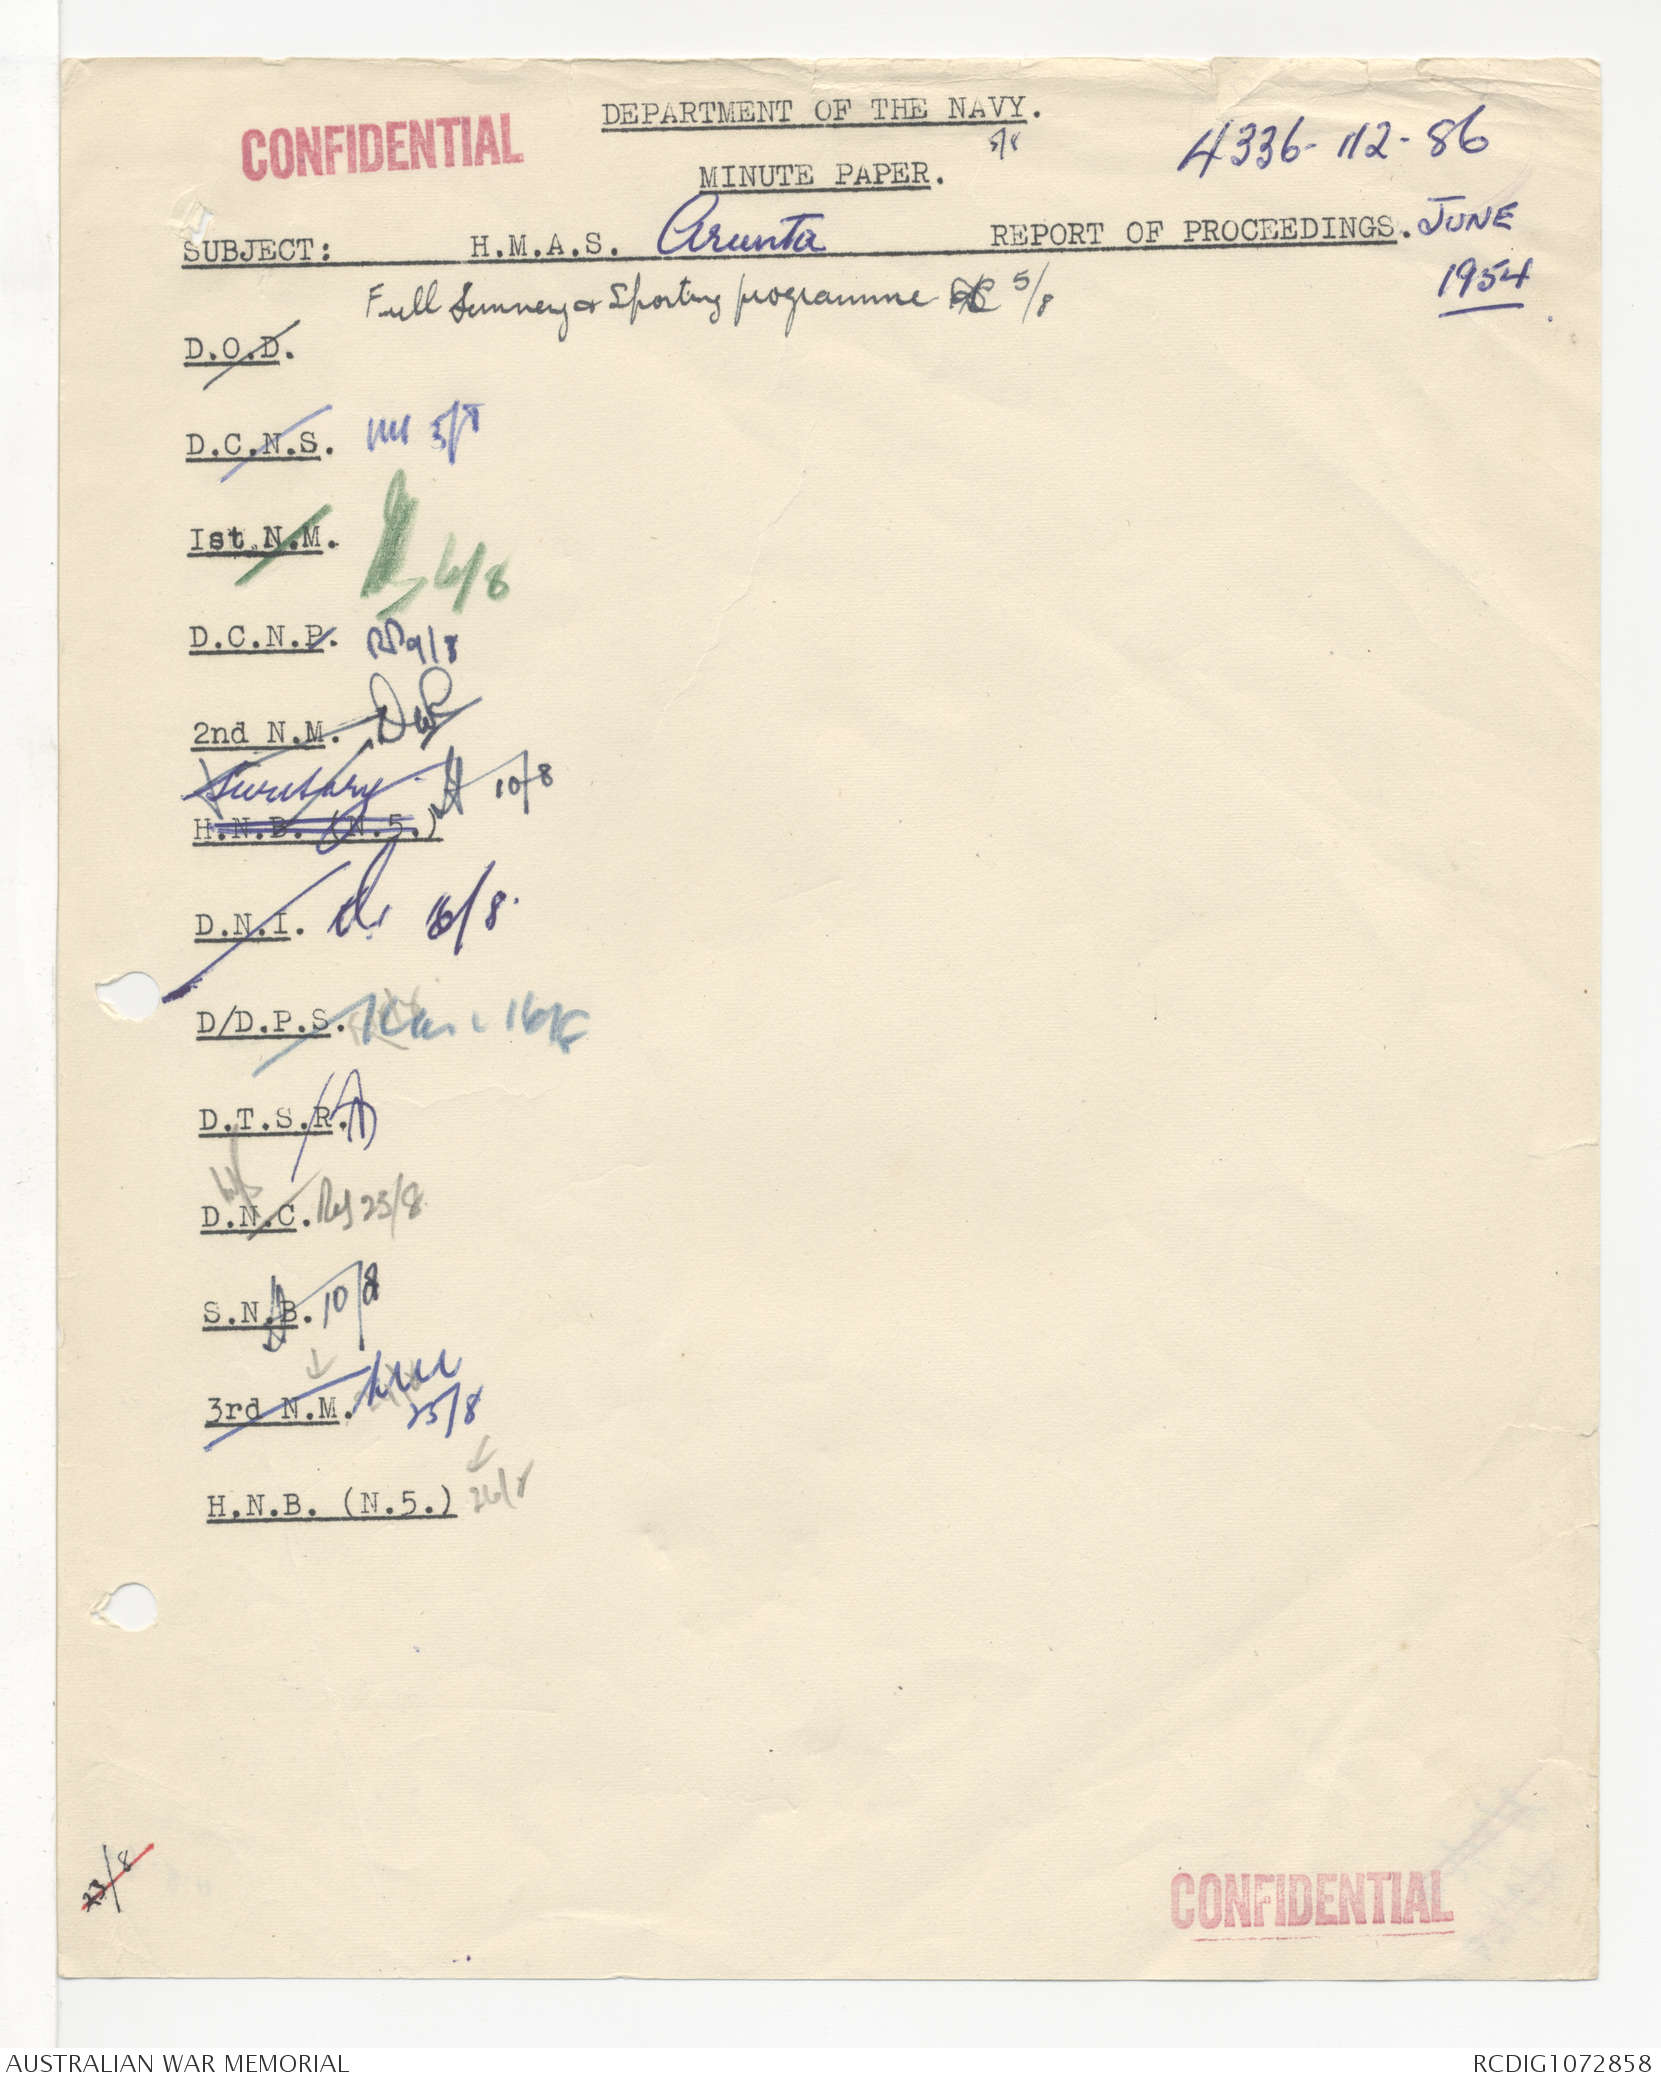 CONFIDENTIAL
DEPARTMENT OF THE NAVY.
5/8
MINUTE PAPER.
4336-112-86
SUBJECT: H.M.A.S. Arunta REPORT OF PROCEEDINGS. JUNE
1954
Full Summery & Sporting programme 5/8
D.O.D.
D.C.N.S.
1st N.M. 6/8
D.C.N.P. 9/8
2nd N.M.
Secretary 10/8
H.N.B. (N.5.)
D.N.I. 16/8
D/D.P.S.
D.T.S.R.
D.N.C. 25/8
S.N.B. 10/8
3rd N.M.
25/8
H.N.B. (N.5.) 26/8
23/8
CONFIDENTIAL
AUSTRALIAN WAR MEMORIAL RCDIG1072858